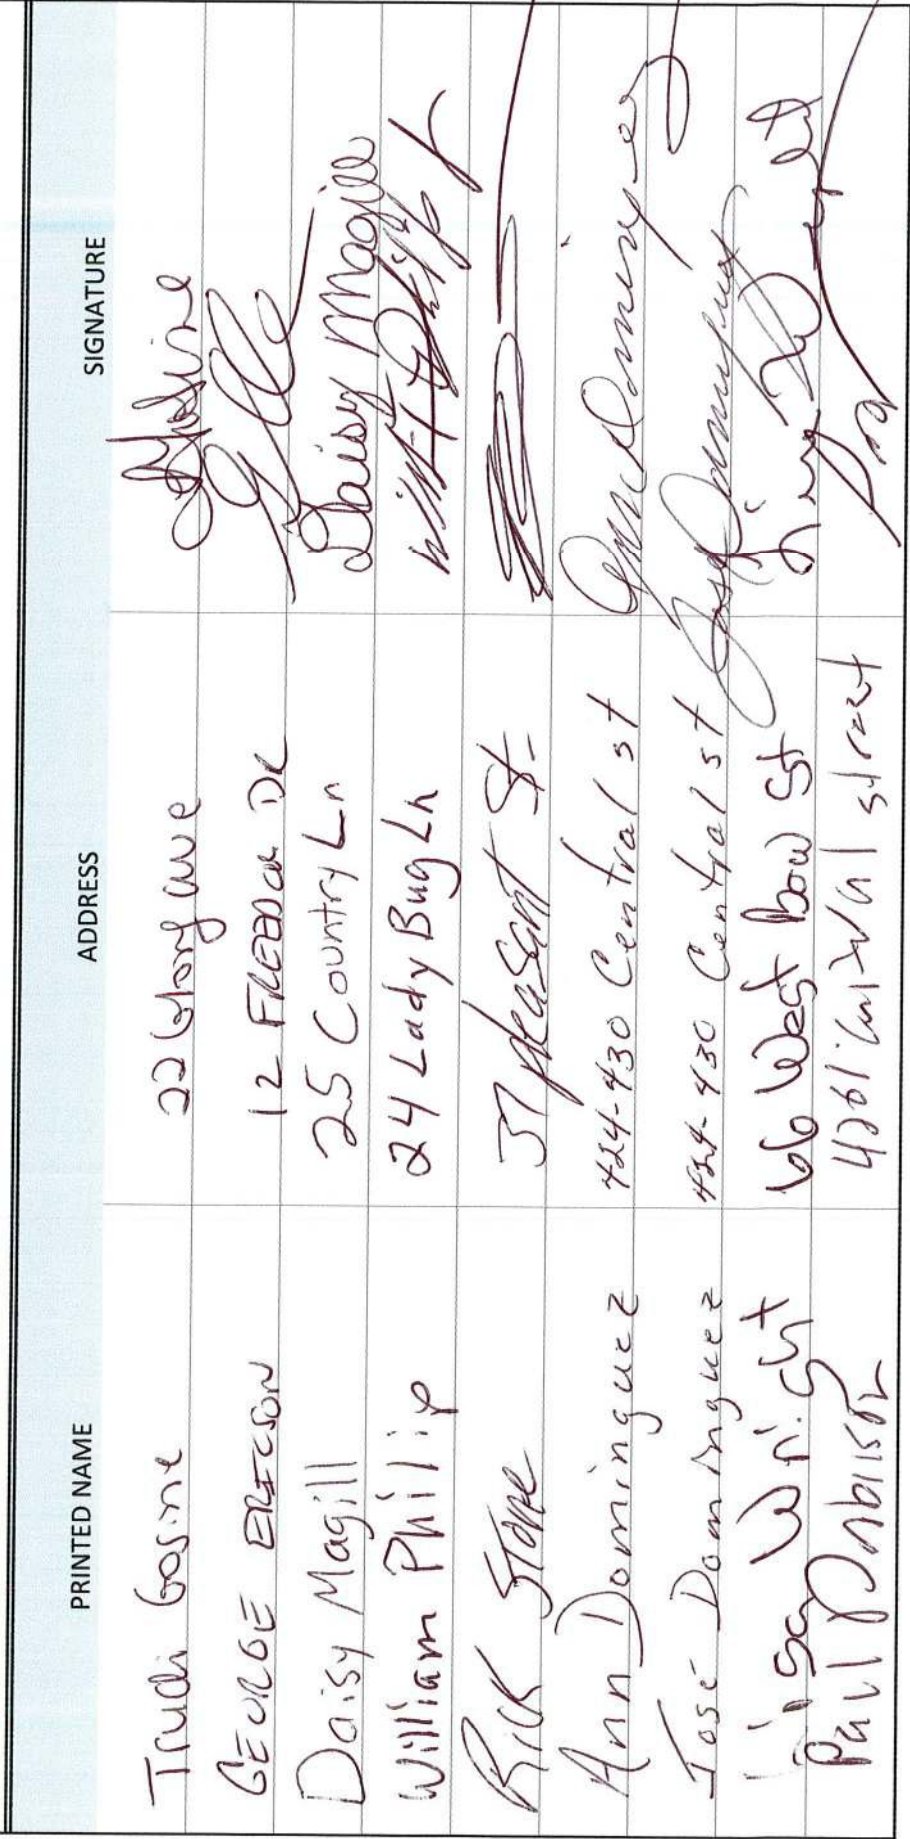 PRINTED NAME ADDRESS SIGNATURE
Trudi Gosine 22 Glory ave
GEORGE ERICSON 12 Dr
Daisy Magill 25 Country Ln Daisy Magill
William Philip 24 Lady Bug Ln
Rick Stone 37 pleasant St.
Ann Dominguez 424-430 Central st Ann Dominguez
José Dominguez 424-430 Central st José Dominguez
Lisa Wright 66 West Bow St
Paul street